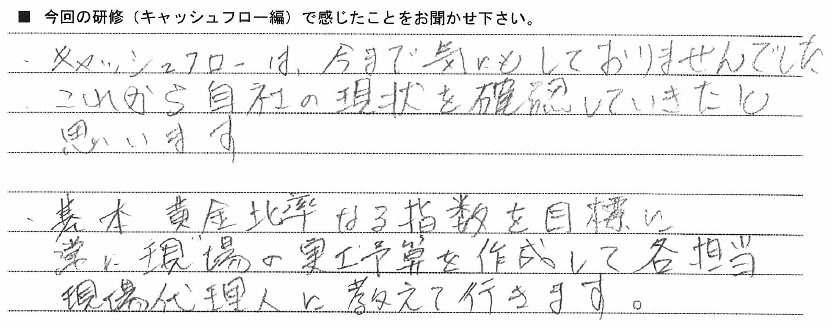 ■ 今回の研修（キャッシュフロー編）で感じたことをお聞かせ下さい。
・キャッシュフローは、今まで気にもしておりませんでした
これから自社の現状を確認していきたいと
思います
・基本 黄金比率なる指数を目標に
常に現場の実行予算を作成して各担当
現場代理人に教えて行きます。